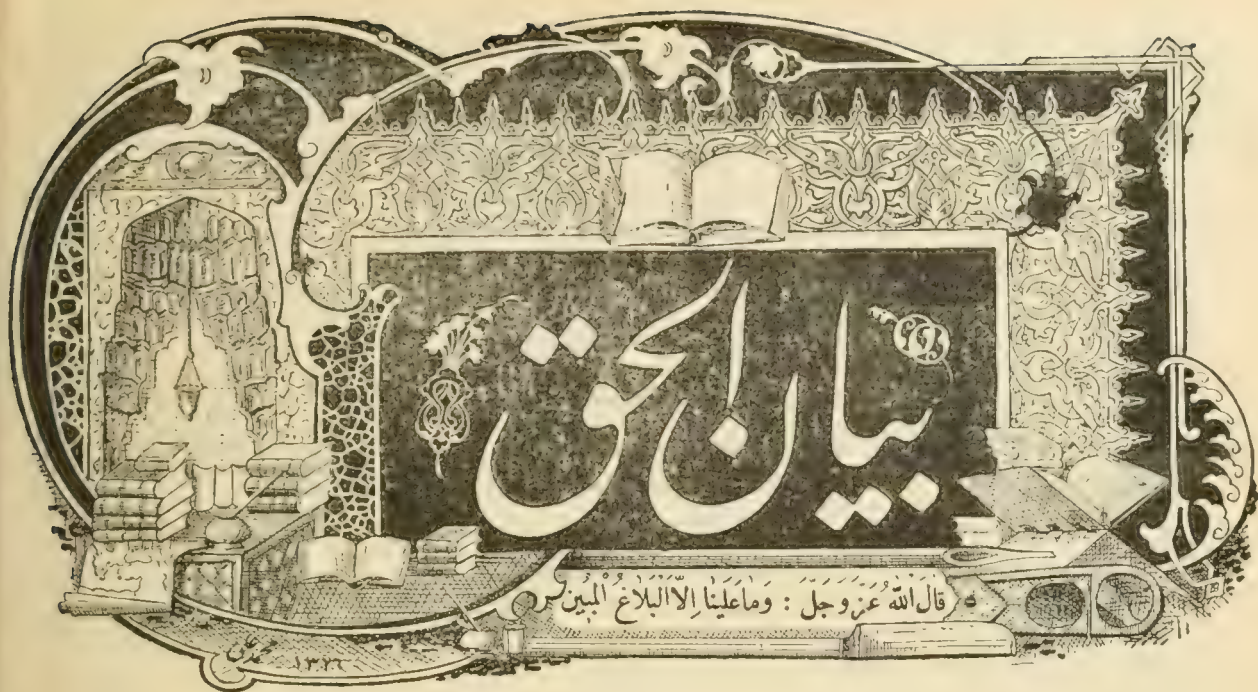 بیان الحق
قَالَ اللّٰهُ عَزَّ وَجَلَّ : وَمَا عَلَيْنَا اِلَّا الْبَلَاغُ الْمُبِينُ
١٣٢٦